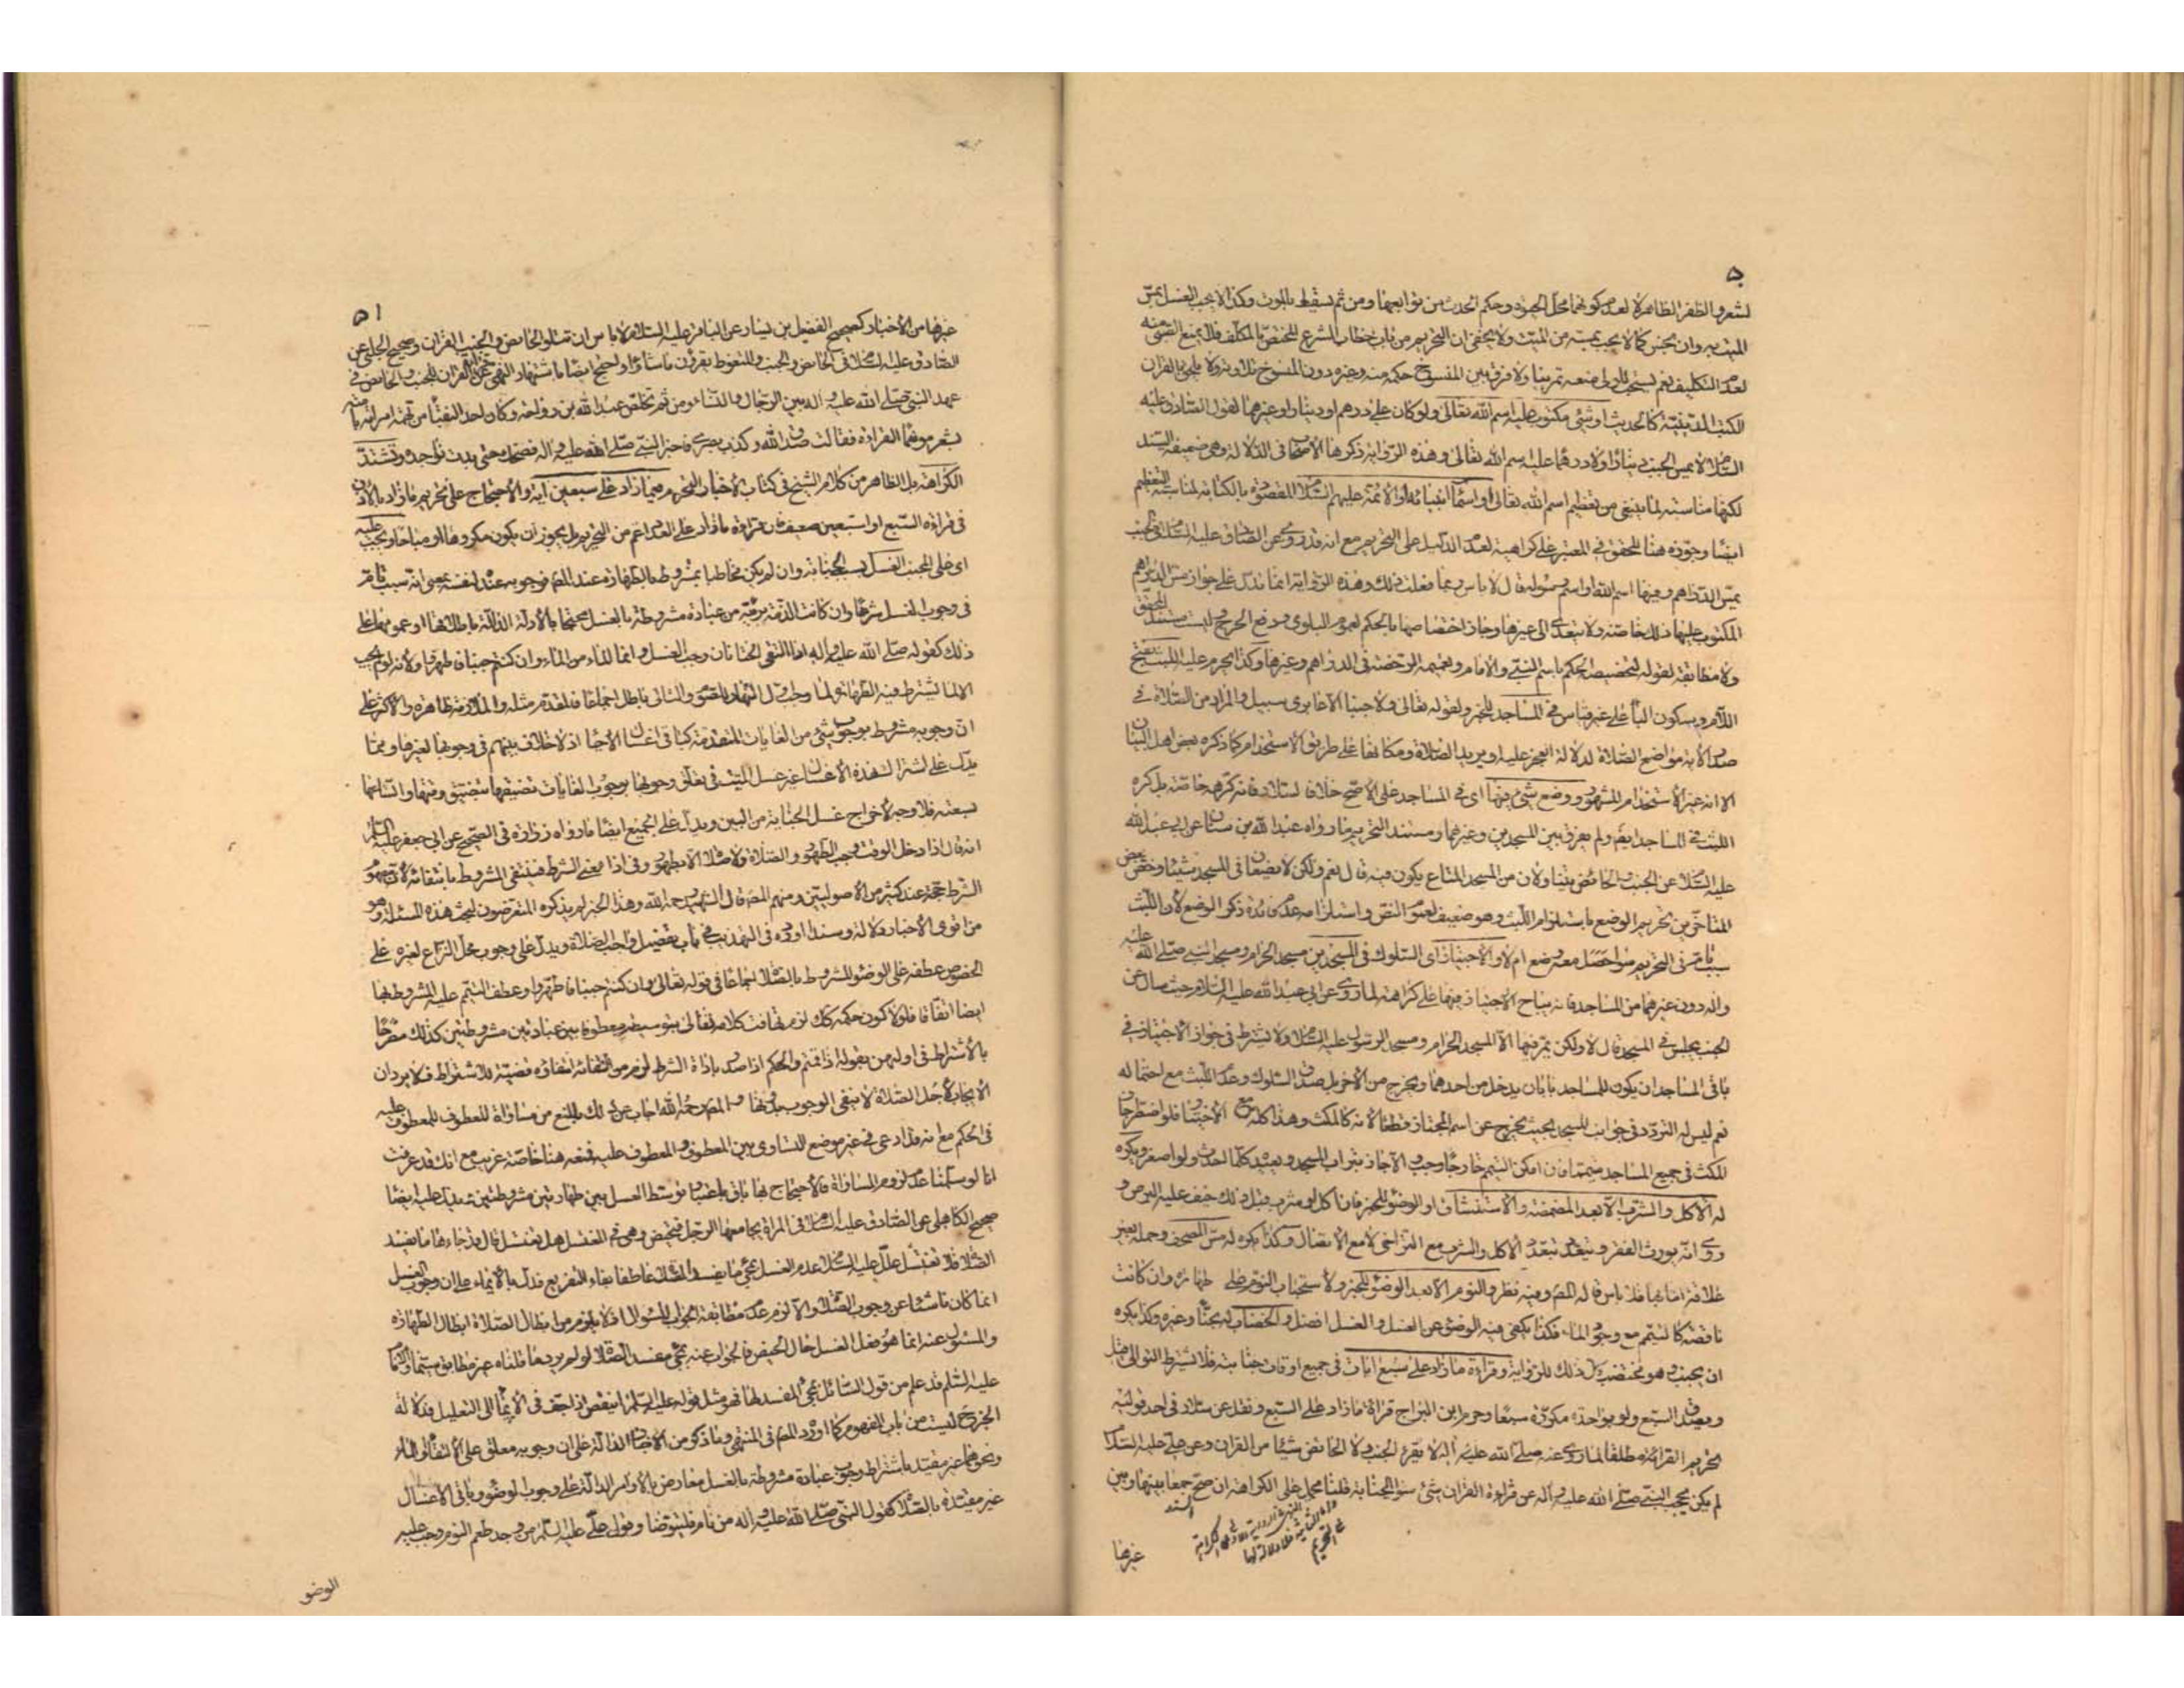 لشعر والظفر الظاهرة لعدم كونهما محل الحيوة وحكم الحدث من توابعها ومن ثم يسقط بالموت وكذا لا يجب الغسل بمس
الميت به وان نجس كما لا يجب بمسه من الميت ولا يخفى ان التحريم من باب خطاب الشرع المختص بالمكلف فلا يمنع الصبي منه
لعدم التكليف نعم يستحب للولي منعه تمرينا ولا فرق بين المنسوخ حكمه منه وغيره دون المنسوخ تلاوته ولا يلحق بالقران
الكتب الدينية كالحديث او شئ مكتوب عليه اسم الله تعالى ولو كان على درهم او دينار او غيرهما لقول الصادق عليه
السلام لا يمس الجنب دينارا ولا درهما عليه اسم الله تعالى وهذه الرواية ذكرها الاصحاب في الدلالة وهي ضعيفة السند
لكنها مناسبة لما ينبغي من تعظيم اسم الله تعالى او اسماء انبيائه او الائمة عليهم السلام المقصودة بالكتابة لمناسبته التعظيم
ايضا وجوزه هنا المحقق في المعتبر على كراهية لعدم الدليل على التحريم مع انه قد روي عن الصادق عليه السلام في الجنب
يمس الدراهم وفيها اسم الله او اسم رسوله قال لا باس ربما فعلت ذلك وهذه الرواية انما تدل على جواز مس الدراهم
المكتوب عليها ذلك خاصة ولا تتعدى الى غيرها وجاز اختصاصها بالحكم لعموم البلوى ودفع الحرج فليست مستند المحقق
ولا مطابقة لقوله لتخصيصه الحكم باسم النبي والامام وتعميمه الرخصة في الدراهم وغيرها وكذا يحرم عليه اللبث بفتح
اللام وسكون الباء على غير قياس في المساجد للخبر ولقوله تعالى ولا جنبا الا عابري سبيل والمراد من الصلاة في
صدر الآية مواضع الصلاة لدلالة العجز عليه او يريد الصلاة ومكانها على طريق الاستخدام كما ذكره بعض اهل البيان
الا انه غير الاستخدام المشهور ووضع شئ فيها اى في المساجد على الاصح خلافا لسلار فانه كرهه خاصة بل كره
اللبث في المساجد ايضا ولم يفرق بين المسجدين وغيرهما ومستند التحريم ما رواه عبد الله بن سنان عن ابي عبد الله
عليه السلام عن الجنب والحائض يتناولان من المسجد المتاع يكون فيه قال نعم ولكن لا يضعان في المسجد شيئا وخص بعض
المتاخرين تحريم الوضع باستلزام اللبث وهو ضعيف لعموم النص واستلزامه عدم فائدة ذكر الوضع لان اللبث
سبب تام في التحريم سواء حصل معه وضع ام لا والاجتياز اى السلوك في المسجدين مسجد الحرام ومسجد النبي صلى الله عليه
واله دون غيرهما من المساجد فانه يباح الاجتياز فيها على كراهة لما روي عن ابي عبد الله عليه السلام حيث سال عن
الجنب يجلس في المسجد قال لا ولكن يمر فيها الا المسجد الحرام ومسجد الرسول عليه السلام ولا يشترط في جواز الاجتياز في
باقي المساجد ان يكون للمساجد بابان يدخل من احدهما ويخرج من الاخر بل صدق السلوك وعدم اللبث مع احتماله
نعم ليس له التردد في جوانب المسجد بحيث يخرج عن اسم المجتاز قطعا لانه كالمكث وهذا كله مع الاختيار فلو اضطر جاز
المكث في جميع المساجد متيمما وان امكن التيمم خارجا وجب والا جاز بتراب المسجد ويعتد كلما احدث ولو اصغر ويكره
له الاكل والشرب الا بعد المضمضة والاستنشاق او الوضوء للخبر فان اكل او شرب قبل ذلك خيف عليه البرص و
روي انه يورث الفقر ويتعدد بتعدد الاكل والشرب مع التراخي لا مع الاتصال وكذا يكره له مس المصحف وحمله بغير
علاقة اما بها فلا باس قاله المص وفيه نظر والنوم الا بعد الوضوء للخبر ولاستحباب النوم على طهارة وان كانت
ناقصة كالتيمم مع وجود الماء فكذا يكفي فيه الوضوء عن الغسل والغسل افضل والخضاب له بحناء وغيره وكذا يكره
ان يجنب وهو مختضب كل ذلك للرواية وقراءة ما زاد على سبع ايات في جميع اوقات جنابته فلا يشترط التوالي
ويصدق السبع ولو بواحدة مكررة سبعا وحرم ابن البراج قراءة ما زاد على السبع ونقل عن سلار في احد قوليه
تحريم القراءة مطلقا لما روي عنه صلى الله عليه واله لا يقرء الجنب ولا الحائض شيئا من القران وعن علي عليه السلام
لم يكن يحجب النبي صلى الله عليه واله عن قراءة القران شئ سوى الجنابة قلنا محمل على الكراهة ان صح جمعا بينها وبين
غيرها
٥١
غيرها من الاخبار كصحيح الفضيل بن يسار عن الباقر عليه السلام لا باس ان تتلو الحائض والجنب القران وصحيح الحلبي عن
الصادق عليه السلام في الحائض والجنب والمتغوط يقرؤن ما شاؤا واحتج ايضا باشتهار النهي عن قراءة القران للجنب والحائض في
عهد النبي صلى الله عليه واله بين الرجال والنساء ومن ثم تخلص عبد الله بن رواحة وكان احد النقباء من تهمة امراته بامته
بشعر موهما القراءة فقالت صدق الله وكذب بصري فاخبر النبي صلى الله عليه واله فضحك حتى بدت نواجذه وتشتد
الكراهة بل الظاهر من كلام الشيخ في كتاب الاخبار التحريم فيما زاد على سبعين اية والاحتجاج على تحريم ما زاد بالاذن
في قراءة السبع او السبعين ضعيف فان قراءة ما زاد على العدد اعم من التحريم بل يجوز ان يكون مكروها او مباحا ويجب عليه
اى على المجنب الغسل بسبب الجنابة وان لم يكن مخاطبا بمشروط بالطهارة عند المص فوجوبه عنده لنفسه بمعنى انه سبب تام
في وجوب الغسل شرعا وان كانت الذمة برئة من عبادة مشروطة بالغسل محتجا بالادلة الدالة باطلاقها او عمومها على
ذلك كقوله صلى الله عليه واله اذا التقى الختانان وجب الغسل وانما الماء من الماء وان كنتم جنبا فاطهروا ولانه لو لم يجب
الا لما يشترط فيه الطهارة لما وجب اول النهار للصوم والتالي باطل اجماعا فالمقدم مثله والملازمة ظاهرة والاكثر على
ان وجوبه مشروط بوجوب شئ من الغايات المتقدمة كباقي اغسال الاحياء اذ لا خلاف بينهم في وجوبها لغيرها ومما
يدل على اشتراك هذه الاغسال غير غسل الميت في تعلق وجوبها بوجوب الغايات تضيقها بتضيق وقتها واتساعها
بسعته فلا وجه لاخراج غسل الجنابة من البين ويدل على الجميع ايضا ما رواه زرارة في الصحيح عن ابي جعفر عليه السلام
انه قال اذا دخل الوقت وجب الطهور والصلاة ولا صلاة الا بطهور وفي اذا معنى الشرط فينتفي المشروط بانتفائه لان مفهوم
الشرط حجة عند كثير من الاصوليين ومنهم المص قال الشهيد رحمه الله وهذا الخبر لم يذكره المتعرضون لبحث هذه المسئلة وهو
من اقوى الاخبار دلالة وسندا اورده في التهذيب في باب تفصيل واجب الصلاة ويدل على وجوب محل النزاع لغيره على
الخصوص عطفه على الوضوء المشروط بالصلاة اجماعا في قوله تعالى وان كنتم جنبا فاطهروا وعطف التيمم عليه المشروط بها
ايضا اتفاقا فلولا كون حكمه كك لزم تهافت كلامه تعالى بتوسيطه معطوفا بين عبادتين مشروطتين كذلك مفرحا
بالاشتراط في اولهن بقوله اذا قمتم والحكم اذا صدر باداة الشرط لزم من انتفائه انتفاؤه قضية للاشتراط فلا يرد ان
الايجاب لاجل الصلاة لا ينفي الوجوب بدونها والمص رحمه الله اجاب عن ذلك بالمنع من مساواة المعطوف للمعطوف عليه
في الحكم مع انه قد ادعى في غير موضع التساوي بين المعطوف والمعطوف عليه فمنعه هنا خاصة غريب مع انك قد عرفت
انا لو سلمنا عدم لزوم المساواة فالاحتجاج بها باق باعتبار توسط الغسل بين طهارتين مشروطتين ويدل عليه ايضا
صحيح الكاهلي عن الصادق عليه السلام في المراة يجامعها الرجل فتحيض وهي في المغتسل هل تغتسل قال قد جاءها ما يفسد
الصلاة فلا تغتسل علل عليه السلام عدم الغسل بمجئ ما يفسد الصلاة عاطفا بفاء التفريع فدل بالايماء على ان وجوب الغسل
انما كان ناشئا عن وجوب الصلاة والا لزم عدم مطابقة الجواب للسؤال اذ لا يلزم من ابطال الصلاة ابطال الطهارة
والمسئول عنه انما هو فعل الغسل حال الحيض فالجواب عنه بمجئ مفسد الصلاة لو لم يرد ما قلناه غير مطابق سيما والامام
عليه السلم قد علم من قول السائل مجئ المفسد لها فهو مثل قوله عليه السلم اينقص اذا جف في الايماء الى التعليل فدلالة
الخبر ح ليست من باب المفهوم كما اورد المص في المنتهى وما ذكر من الاخبار الدالة على ان وجوبه معلق على الالتقاء والماء
ونحوهما غير مقيد باشتراط وجوب عبادة مشروطة بالغسل معارض بالاوامر الدالة على وجوب الوضوء وباقي الاغسال
غير مقيدة بالصلاة كقول النبي صلى الله عليه واله من نام فليتوضا وقول علي عليه السلم من وجد طعم النوم وجب عليه
الوضو